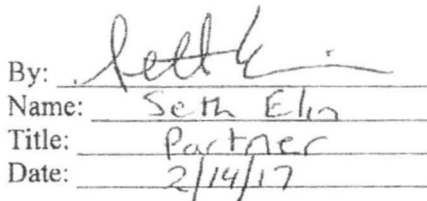 By:
Name: Seth Elin
Title: Partner
Date: 2/14/17